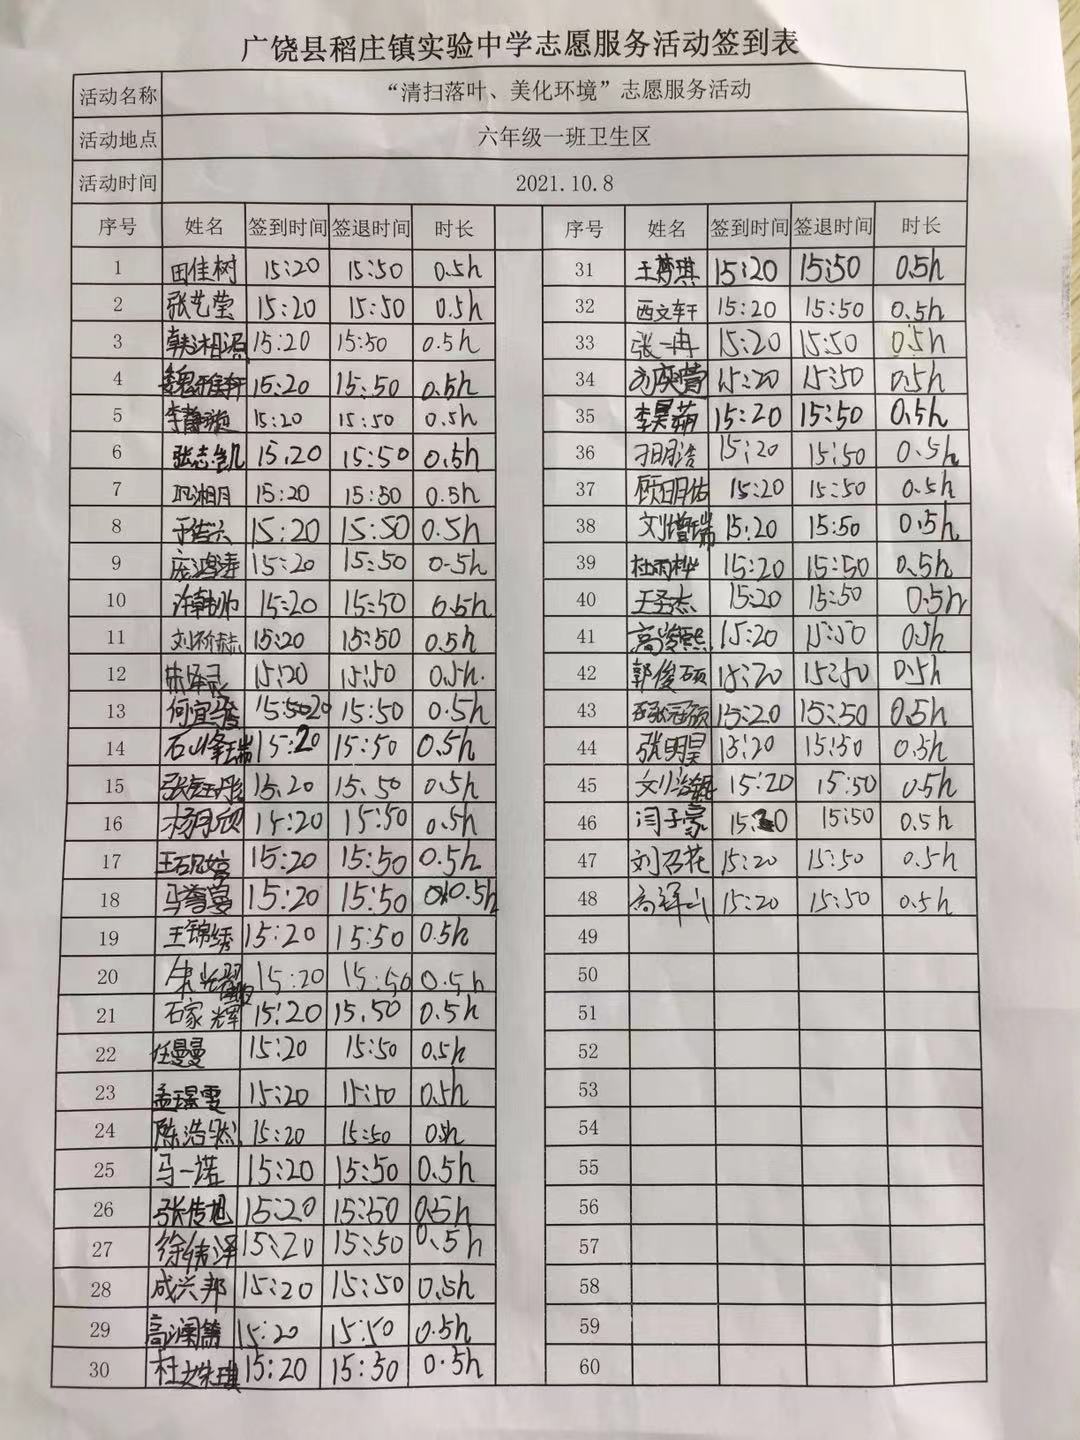 广饶县稻庄镇实验中学志愿服务活动签到表
活动名称 “清扫落叶、美化环境”志愿服务活动
活动地点 六年级一班卫生区
活动时间 2021.10.8
序号 姓名 签到时间 签退时间 时长 序号 姓名 签到时间 签退时间 时长
1 田佳树 15:20 15:50 0.5h 31 王梦琪 15:20 15:50 0.5h
2 张艺莹 15:20 15:50 0.5h 32 西文轩 15:20 15:50 0.5h
3 韩湘源 15:20 15:50 0.5h 33 张一冉 15:20 15:50 0.5h
4 魏雅轩 15:20 15:50 0.5h 34 15:20 15:50 0.5h
5 李静璇 15:20 15:50 0.5h 35 李昊茹 15:20 15:50 0.5h
6 张志凯 15.20 15:50 0.5h 36 15:20 15:50 0.5h
7 15:20 15:50 0.5h 37 顾明佑 15:20 15:50 0.5h
8 15:20 15:50 0.5h 38 刘增瑞 15:20 15:50 0.5h
9 庞鸿涛 15:20 15:50 0.5h 39 杜雨桦 15:20 15:50 0.5h
10 15:20 15:50 0.5h 40 王圣杰 15:20 15:50 0.5h
11 15:20 15:50 0.5h 41 高浚熙 15:20 15:50 0.5h
12 15:20 15:50 0.5h. 42 郭俊硕 15:20 15:50 0.5h
13 15:20 15:50 0.5h 43 15:20 15:50 0.5h
14 石峰瑞 15:20 15:50 0.5h 44 张明昊 15:20 15:50 0.5h
15 张钰彤 15.20 15.50 0.5h 45 15:20 15:50 0.5h
16 杨月欣 15:20 15:50 0.5h 46 闫子豪 15:20 15:50 0.5h
17 王砚婷 15:20 15:50 0.5h 47 刘召花 15:20 15:50 0.5h
18 15:20 15:50 0.5h 48 15:20 15:50 0.5h
19 王锦绣 15:20 15:50 0.5h 49
20 15:20 15:50 0.5h 50
21 石家辉 15:20 15.50 0.5h 51
22 任曼曼 15:20 15:50 0.5h 52
23 孟璟雯 15:20 15:50 0.5h 53
24 陈浩然 15:20 15:50 0.5h 54
25 马一诺 15:20 15:50 0.5h 55
26 张传旭 15:20 15:50 0.5h 56
27 徐伟泽 15:20 15:50 0.5h 57
28 成兴邦 15:20 15:50 0.5h 58
29 15:20 15:50 0.5h 59
30 杜文珠琪 15:20 15:50 0.5h 60